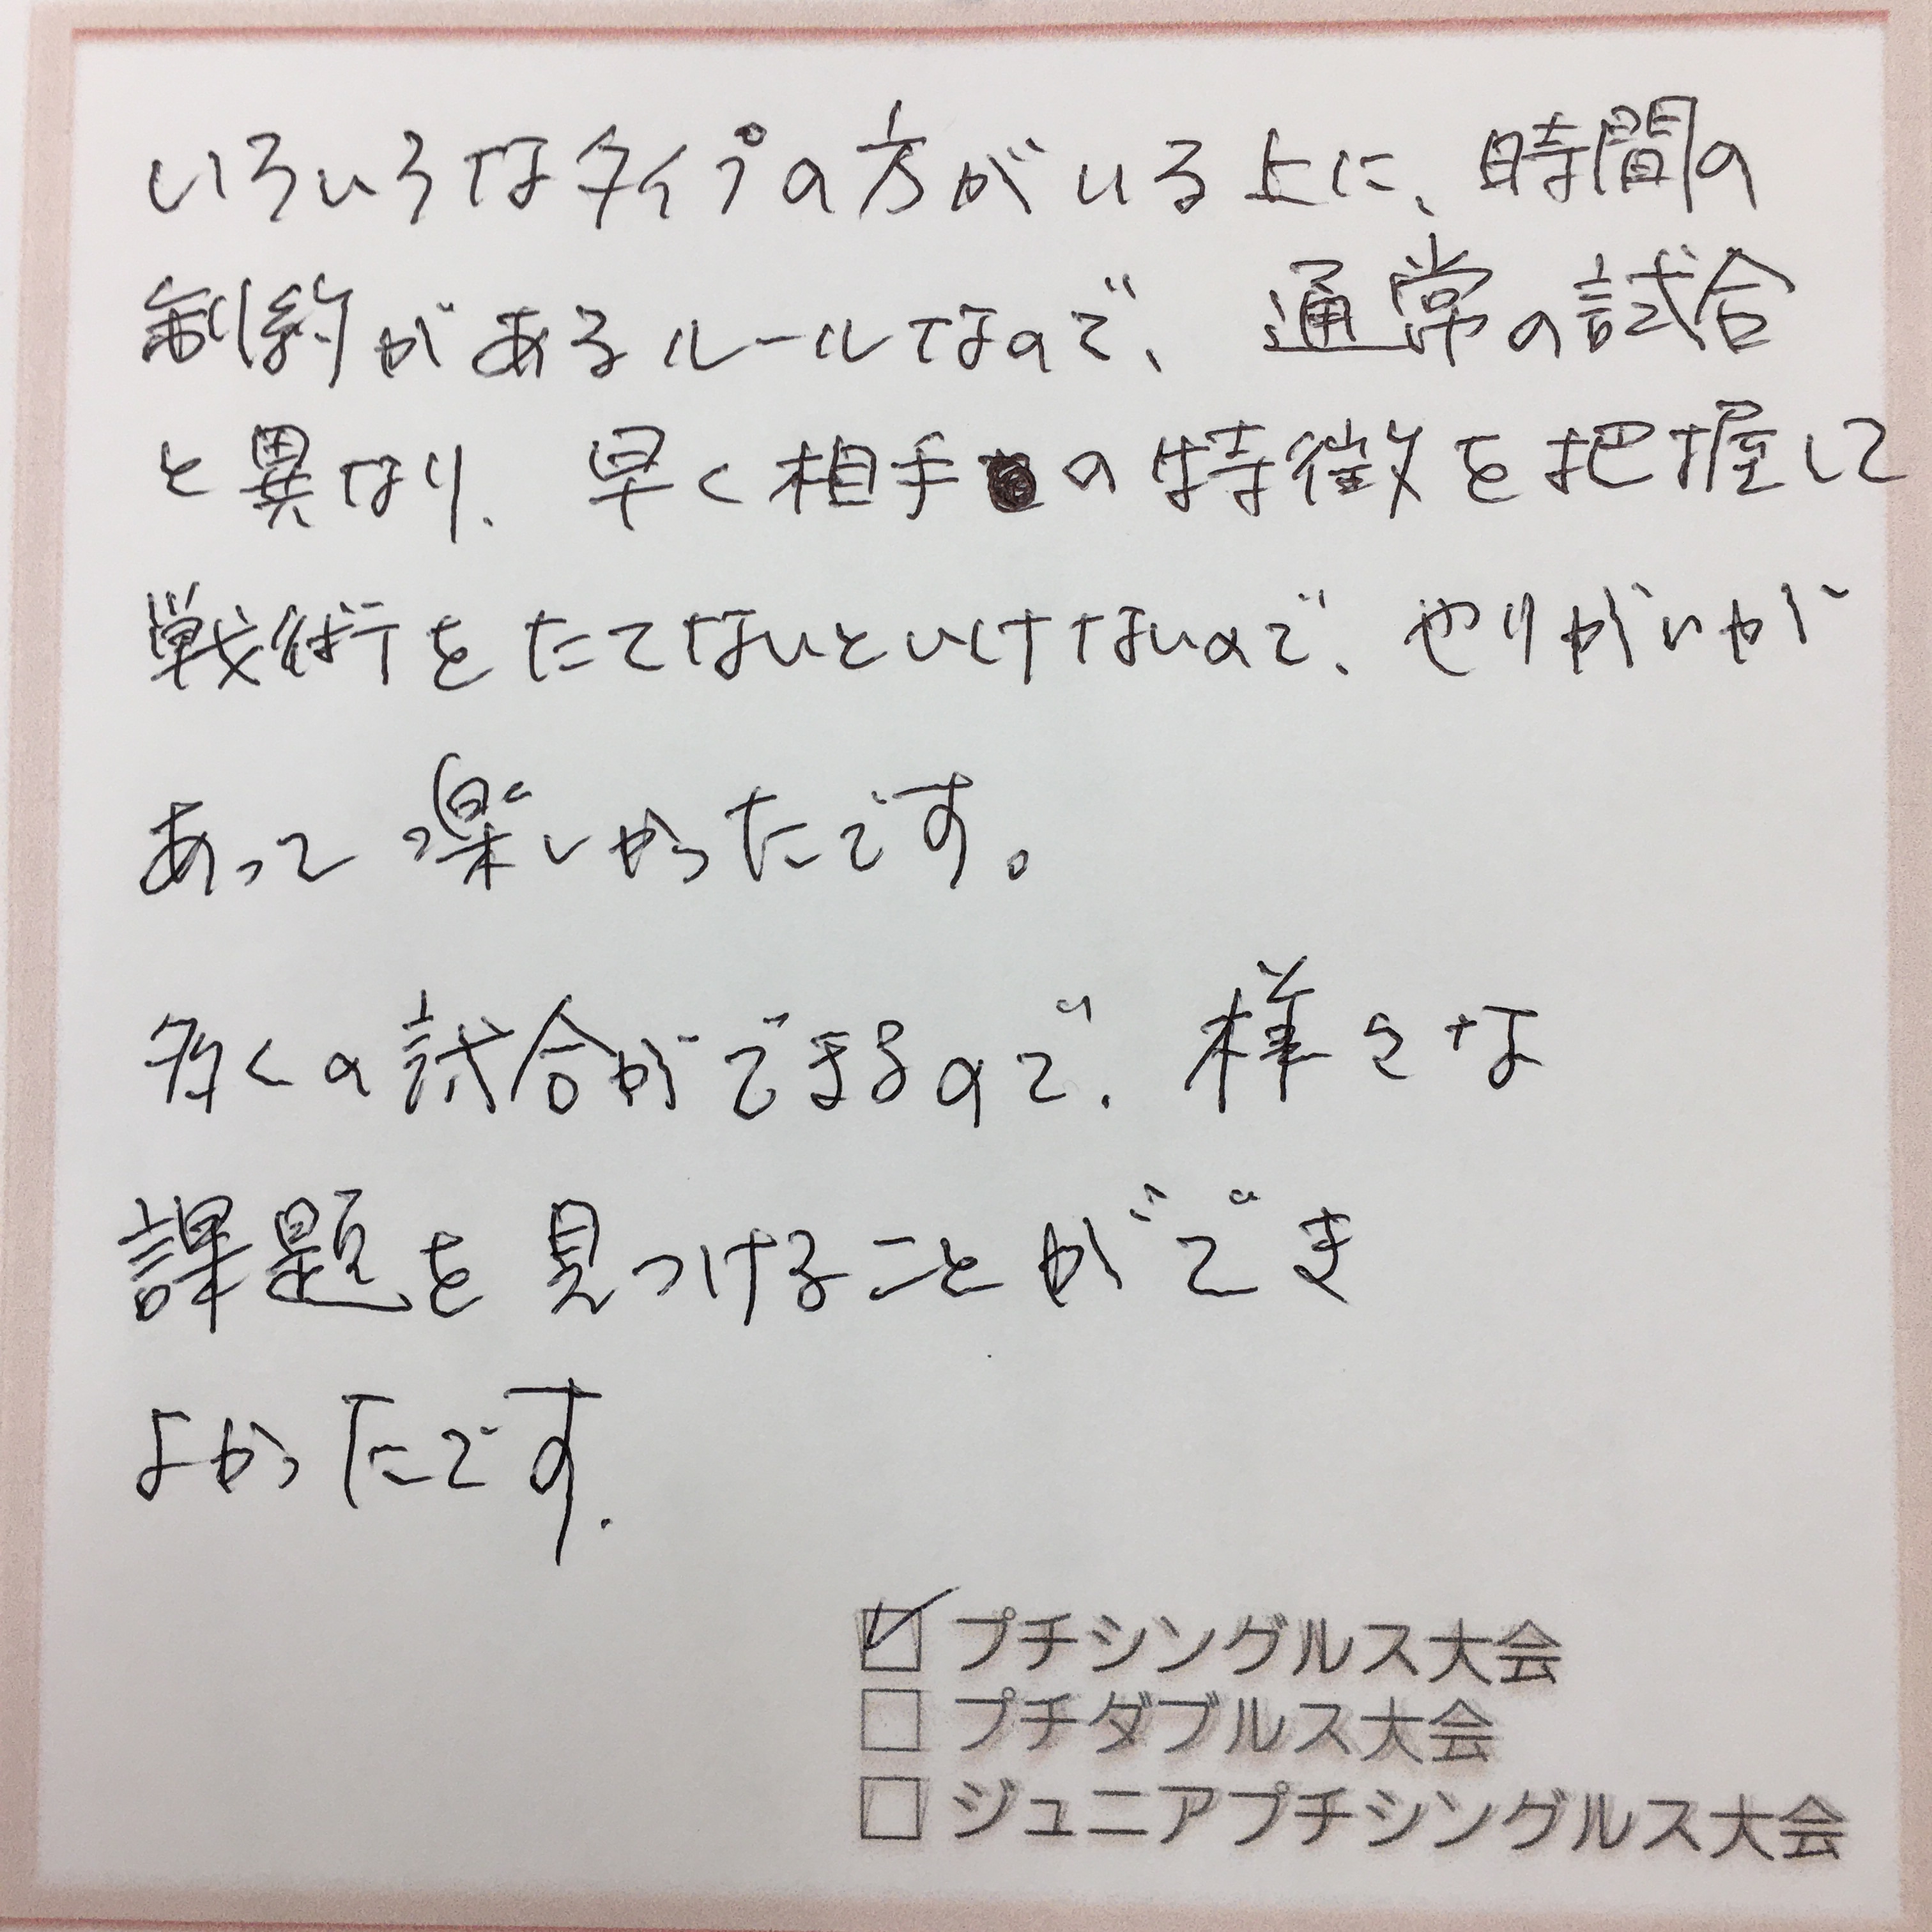 いろいろなタイプの方がいる上に、時間の
制約があるルールなので、通常の試合
と異なり、早く相手の特徴を把握して
戦術をたてないといけないので、やりがいが
あって楽しかったです。
多くの試合ができるので、様々な
課題を見つけることができ
よかったです.
プチシングルス大会
プチダブルス大会
ジュニアプチシングルス大会